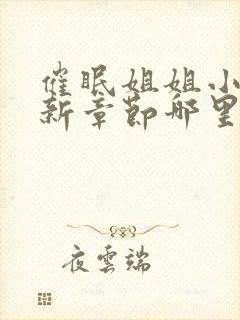 催眠姐姐小
新章節哪里
夜雲端